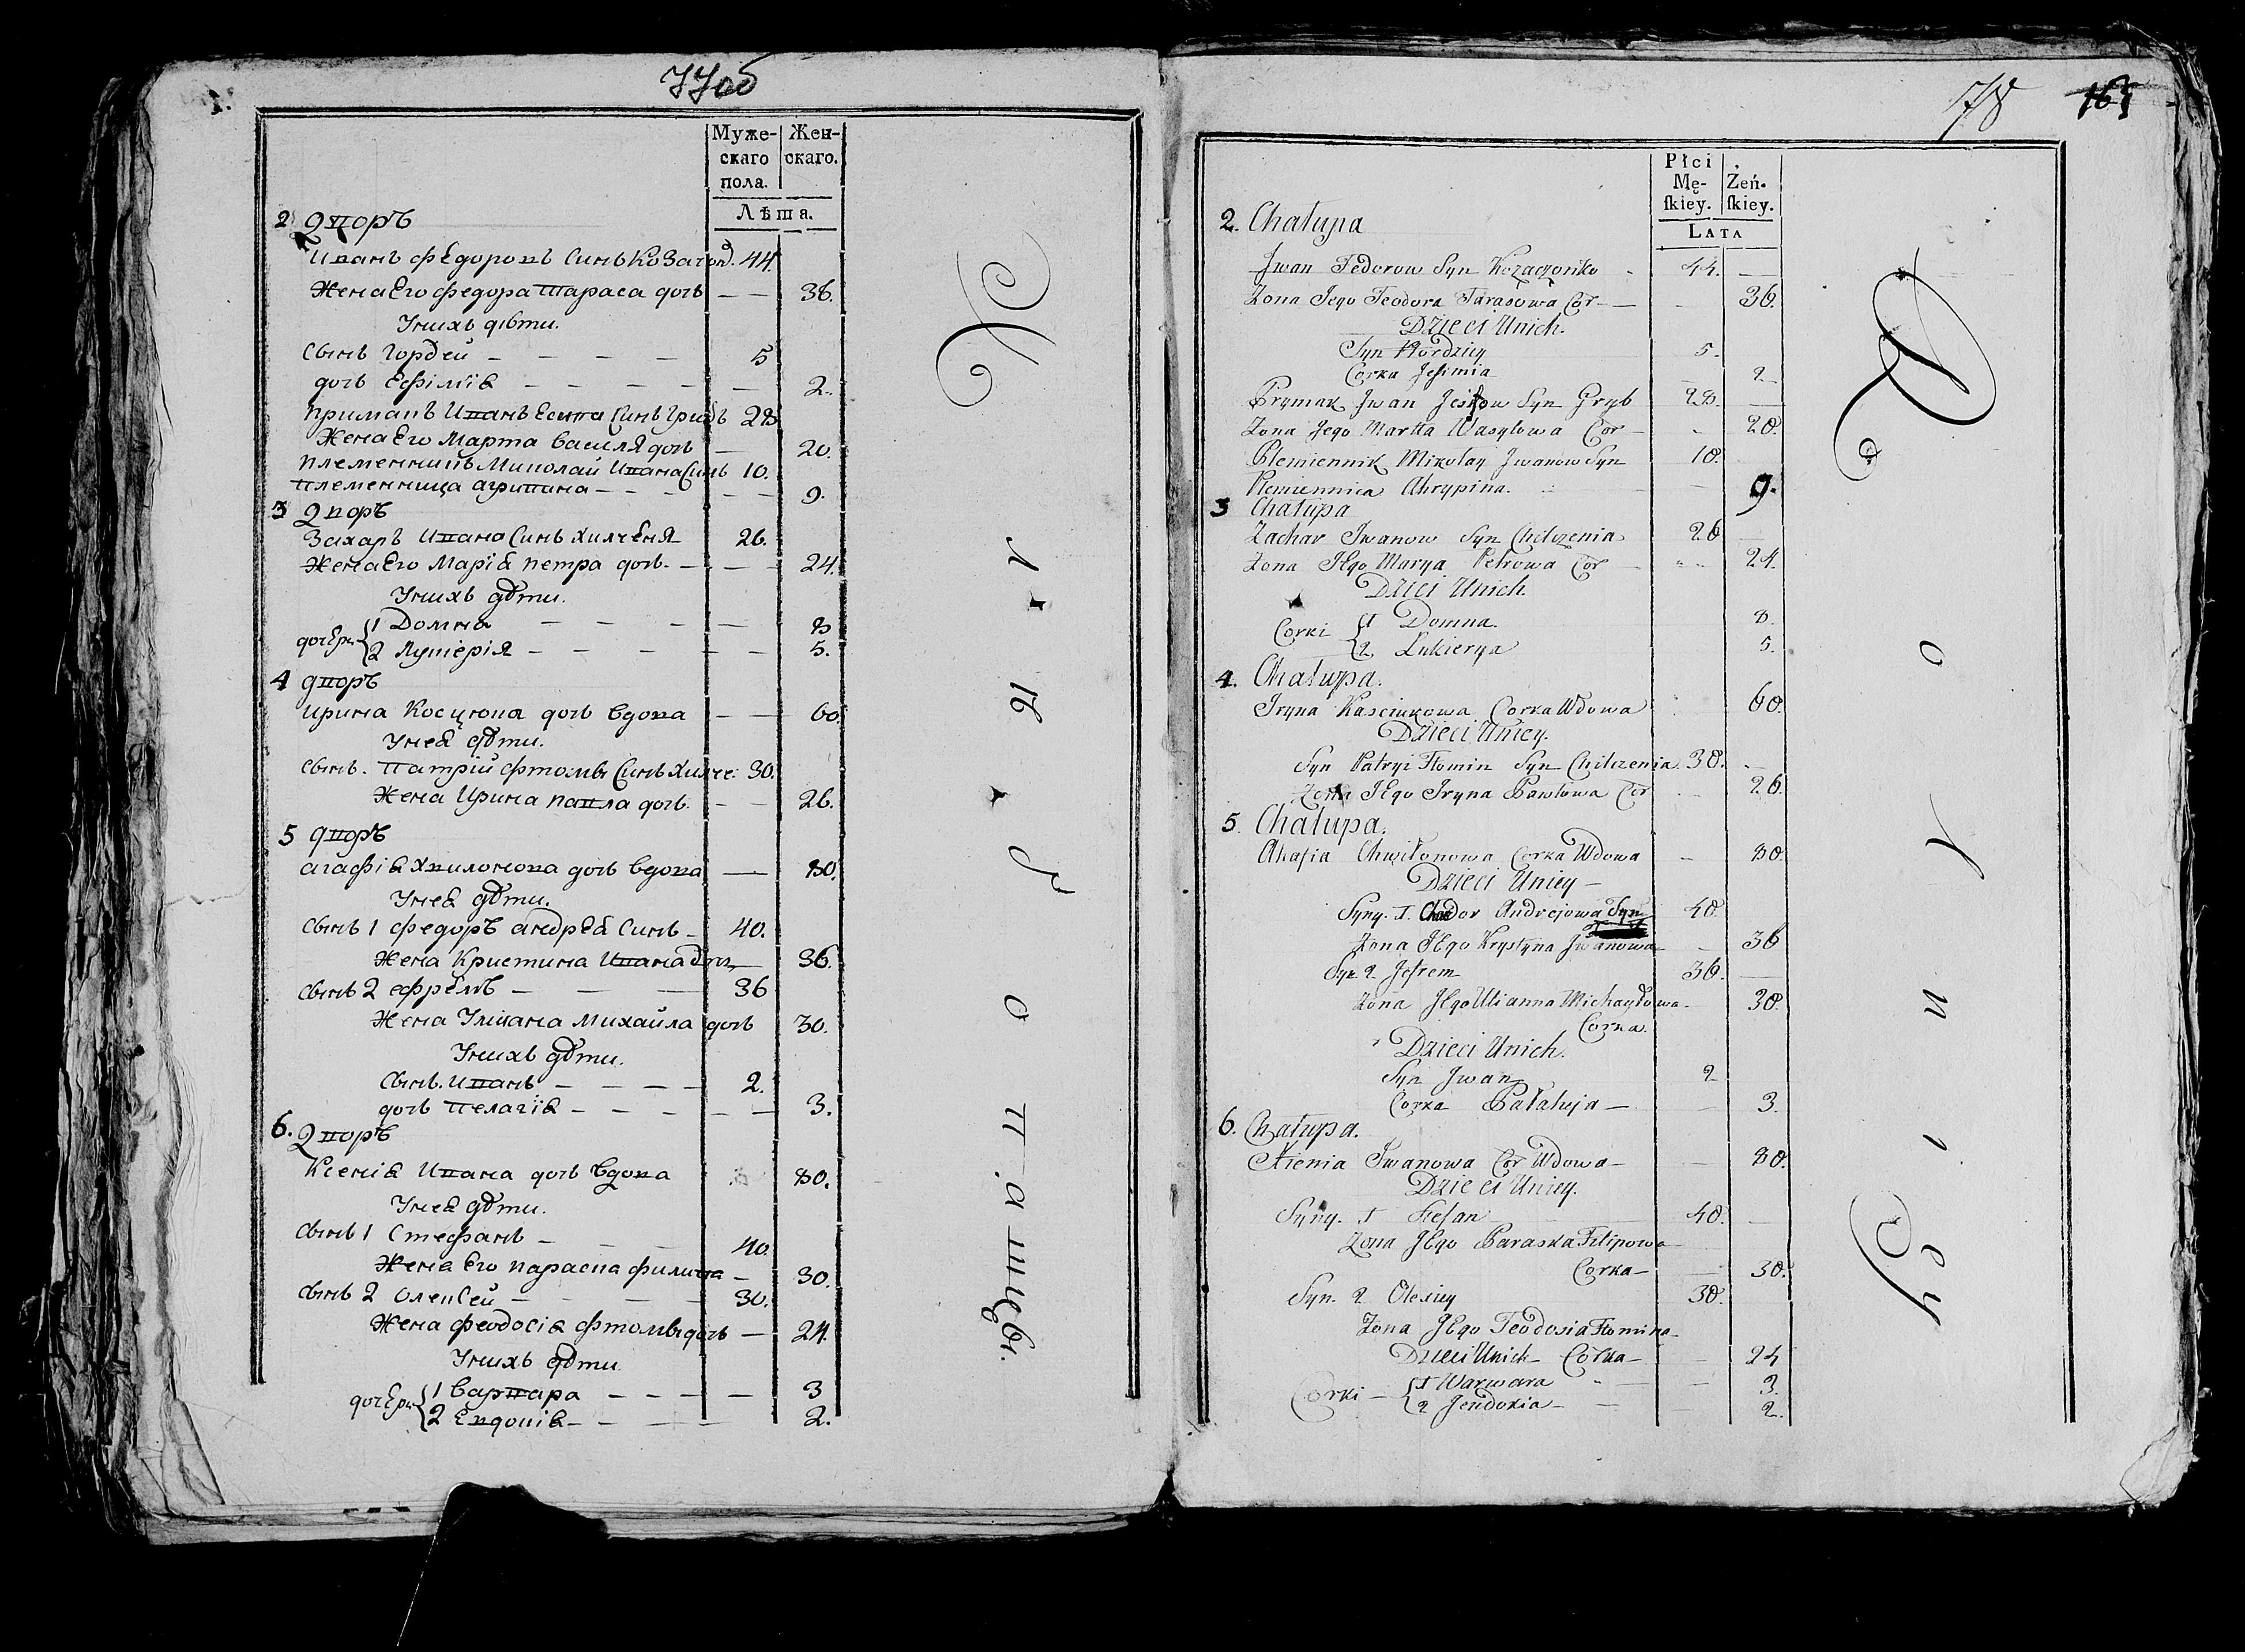 77об
Муже-
скаго
пола.
Жен-
скаго.
Лѣта.
2 Дворъ
Иванъ Федоровъ Синъ Козачон. 44.
Жена Его Федора Тараса дочь — — 36.
У нихъ дѣти.
Сынъ Гордей — — — — 5
дочь Ефімія — — — — — 2.
Примакъ Иванъ Есипа Синъ Грибъ 28
Жена Его Марта Василя дочь — 20.
Племенникъ Миколай Ивана Синъ 10.
Племенница Агрипина — — — — — 9.
3 Дворъ
Захаръ Ивана Синъ Хилченя 26.
Жена Его Марія Петра дочь. — — — 24.
У нихъ дѣти.
дочЕри { 1 Домна — — — — — 8
2 Лукерія — — — — — 5.
4 дворъ
Ирина Косцюва дочь Вдова — — 60.
У неЯ дѣти.
Сынъ. Патрій Фтомы Синъ Хилче: 30.
Жена Ирина Павла дочь. — — 26.
5 дворъ
Агафія Хвилонова дочь Вдова — 80.
У неЯ дѣти.
Сынъ 1 Федоръ Андрея Синъ — 40.
Жена Кристина Ивана доч. — 36.
Сынъ 2 Ефремъ — — — 36
Жена Уліана Михайла дочь 30.
У нихъ дѣти.
Сынъ. Иванъ — — — — 2.
дочь Пелагія — — — — — 3.
6. Дворъ
Ксенія Ивана дочь Вдова 80.
У неЯ дѣти.
Сынъ 1 Стефанъ — — — 40.
Жена Его Параска Филипа — 30.
Сынъ 2 Олексей — — — — 30.
Жена Феодосія Фтомы дочь — 24.
У нихъ дѣти
дочЕри { 1 Варвара — — — — 3
2 Евдокія — — — — 2.
Х л ѣ б о п а ш цы.
78 163
Płci
Mę-
ſkiey.
Żeń-
ſkiey.
LATA
2. Chałupa
Jwan Fedorow Syn Kozaczońko 44. —
Zona Jego Teodora Tarasowa Cor — — 36.
Dzieci Unich.
Syn Hordziey 5.
Corka Jefimia 2
Prymak Jwan Jesifow Syn Gryb 28. —
Zona Jego Marta Wasylowa Cor — 20.
Plemiennik Mikołay Jwanow Syn 10.
Plemiennica Ahrypina. — 9.
3 Chałupa
Zachar Jwanow Syn Chilczenia 26 —
Zona JEgo Marya Petrowa Cor — 24.
Dzieci Unich.
Corki { 1 Domna. 8.
2 Lukierya 5.
4. Chałupa.
Jryna Kasciukowa Corka Wdowa 60.
Dzieci Uniey.
Syn Patryi Ftomin Syn Chilczenia. 30. —
Zona JEgo Jryna Pawłowa Cor — 26.
5. Chałupa.
Ahafia Chwiłonowa Corka Wdowa — 80.
Dzieci Uniey —
Syny. 1. Chwedor Andrejowa Syn 40.
Zona JEgo Krystyna Jwanowa — 36
Syn 2 Jefrem 36. —
Zona JEgo Ulianna Michayłowa — 30.
Corka.
Dzieci Unich.
Syn Jwan 2
Corka Pałahija — — 3.
6. Chałupa.
Xienia Jwanowa Cor Wdowa — — 80.
Dzieci Uniey.
Syny. 1 Stefan 40. —
Zona JEgo Paraska Filipowa —
Corka — — 30.
Syn. 2 Olexiey 30.
Zona JEgo Teodosia Ftomina —
Dzieci Unich — Corka — — 24
Corki — { 1 Warwara — 3.
2 Jeudokia — — 2.
R o l n i cy